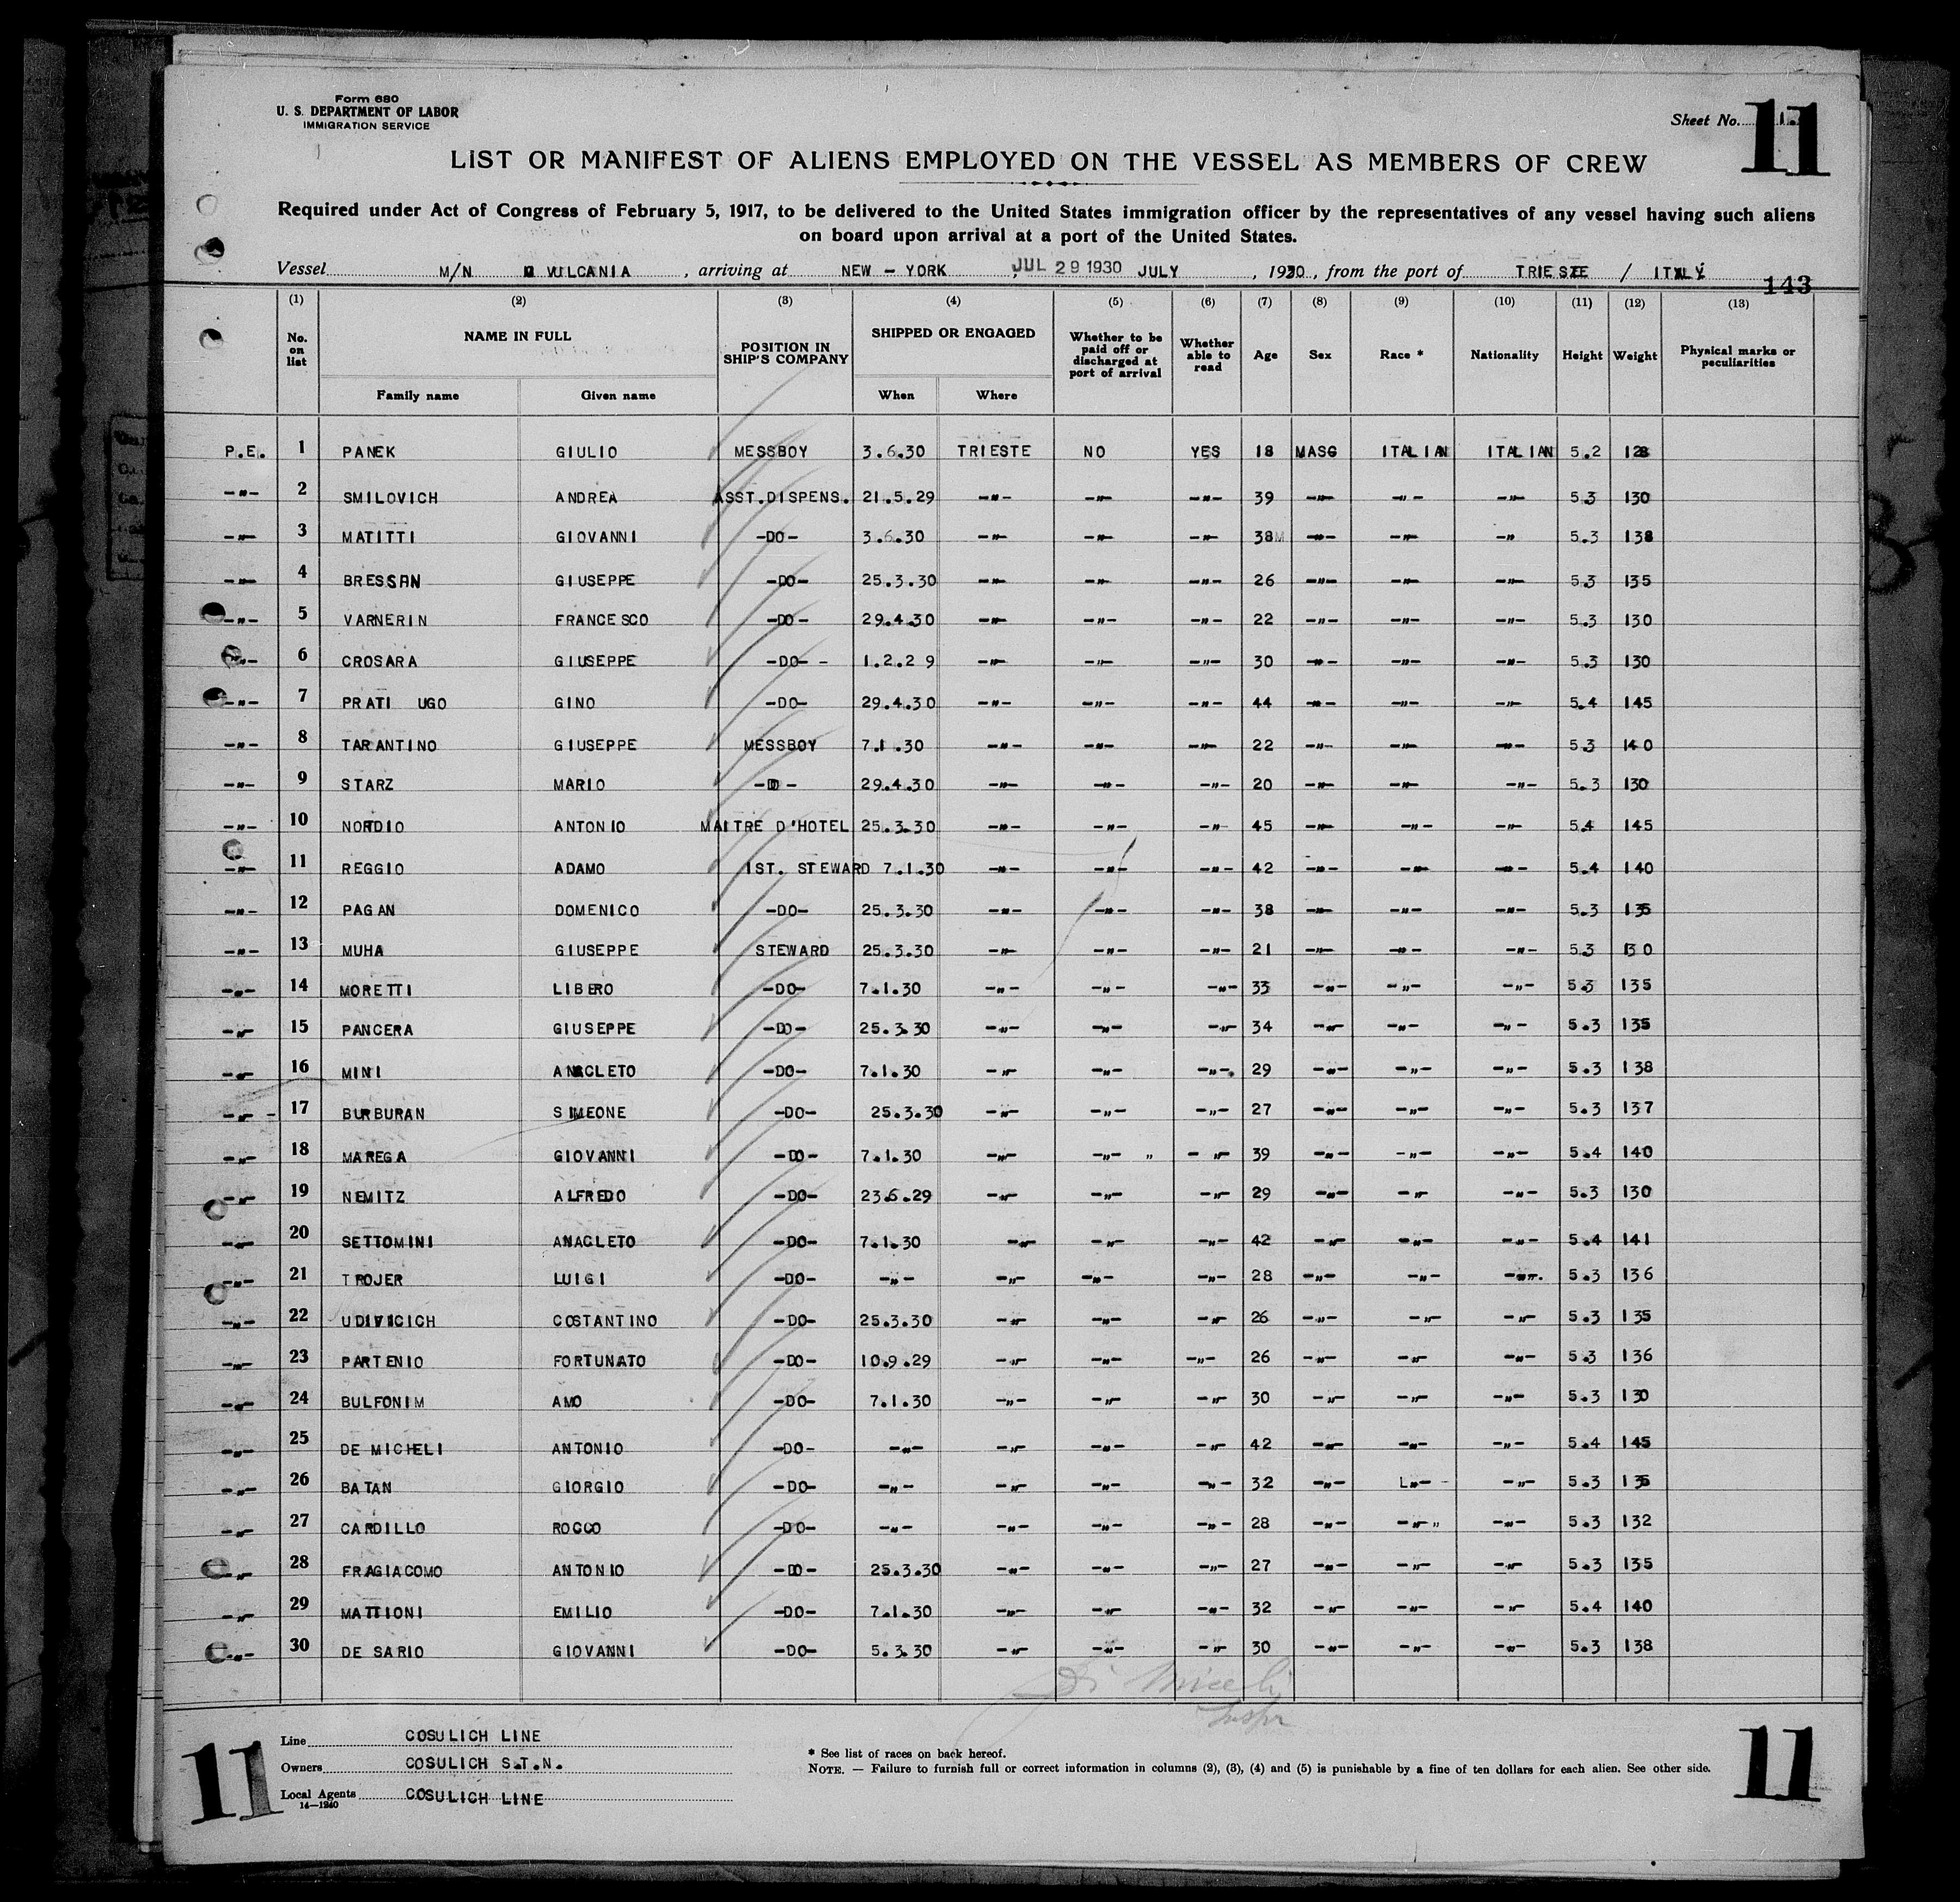 Form 680
U. S. DEPARTMENT OF LABOR
IMMIGRATION SERVICE
Sheet No. 11
LIST OR MANIFEST OF ALIENS EMPLOYED ON THE VESSEL AS MEMBERS OF CREW
Required under Act of Congress of February 5, 1917, to be delivered to the United States immigration officer by the representatives of any vessel having such aliens
on board upon arrival at a port of the United States.
Vessel M/N VULCANIA , arriving at NEW - YORK JUL 29 1930 JULY , 1930 , from the port of TRIESTE / ITALY
143
(1) (2) (3) (4) (5) (6) (7) (8) (9) (10) (11) (12) (13)
No. on list NAME IN FULL POSITION IN SHIP'S COMPANY SHIPPED OR ENGAGED Whether to be paid off or discharged at port of arrival Whether able to read Age Sex Race * Nationality Height Weight Physical marks or peculiarities
Family name Given name When Where
P.E. 1 PANEK GIULIO MESSBOY 3.6.30 TRIESTE NO YES 18 MASC ITALIAN ITALIAN 5.2 128
-"- 2 SMILOVICH ANDREA ASST.DISPENS. 21.5.29 -"- -"- -"- 39 -"- -"- -"- 5.3 130
-"- 3 MATITTI GIOVANNI -DO- 3.6.30 -"- -"- -"- 38M -"- -"- -"- 5.3 138
-"- 4 BRESSAN GIUSEPPE -DO- 25.3.30 -"- -"- -"- 26 -"- -"- -"- 5.3 135
-"- 5 VARNERIN FRANCESCO -DO- 29.4.30 -"- -"- -"- 22 -"- -"- -"- 5.3 130
-"- 6 CROSARA GIUSEPPE -DO- - 1.2.29 -"- -"- -"- 30 -"- -"- -"- 5.3 130
-"- 7 PRATI UGO GINO -DO- 29.4.30 -"- -"- -"- 44 -"- -"- -"- 5.4 145
-"- 8 TARANTINO GIUSEPPE MESSBOY 7.1.30 -"- -"- -"- 22 -"- -"- -"- 5.3 140
-"- 9 STARZ MARIO -DO- 29.4.30 -"- -"- -"- 20 -"- -"- -"- 5.3 130
-"- 10 NORDIO ANTONIO MAITRE D'HOTEL 25.3.30 -"- -"- -"- 45 -"- -"- -"- 5.4 145
-"- 11 REGGIO ADAMO 1ST. STEWARD 7.1.30 -"- -"- -"- 42 -"- -"- -"- 5.4 140
-"- 12 PAGAN DOMENICO -DO- 25.3.30 -"- -"- -"- 38 -"- -"- -"- 5.3 135
-"- 13 MUHA GIUSEPPE STEWARD 25.3.30 -"- -"- -"- 21 -"- -"- -"- 5.3 130
-"- 14 MORETTI LIBERO -DO- 7.1.30 -"- -"- -"- 33 -"- -"- -"- 5.3 135
-"- 15 PANCERA GIUSEPPE -DO- 25.3.30 -"- -"- -"- 34 -"- -"- -"- 5.3 135
-"- 16 MINI ANACLETO -DO- 7.1.30 -"- -"- -"-. 29 -"- -"- -"- 5.3 138
-"- - 17 BURBURAN SIMEONE -DO- 25.3.30 -"- -"- -"- 27 -"- -"- -"- 5.3 137
-"- 18 MAREGA GIOVANNI -DO- 7.1.30 -"- -"- " -"- 39 -"- -"- -"- 5.4 140
-"- 19 NEMITZ ALFREDO -DO- 23.6.29 -"- -"- -"- 29 -"- -"- -"- 5.3 130
-"- 20 SETTOMINI ANACLETO -DO- 7.1.30 -"- -"- -"- 42 -"- -"- -"- 5.4 141
-"- 21 TROJER LUIGI -DO- -"- -"- -"- -"- 28 -"- -"- -"-. 5.3 136
-"- 22 UDIVICICH COSTANTINO -DO- 25.3.30 -"- -"- -"- 26 -"- -"- -"- 5.3 135
-"- 23 PARTENIO FORTUNATO -DO- 10.9.29 -"- -"- -"- 26 -"- -"- -"- 5.3 136
-"- 24 BULFONIM AMO -DO- 7.1.30 -"- -"- -"- 30 -"- -"- -"- 5.3 130
-"- 25 DE MICHELI ANTONIO -DO- -"- -"- -"- -"- 42 -"- -"- -"- 5.4 145
-"- 26 BATAN GIORGIO -DO- -"- -"- -"- -"- 32 -"- L"- -"- 5.3 135
-"- 27 CARDILLO ROCCO -DO- -"- -"- -"- -"- 28 -"- -"- " -"- 5.3 132
-"- 28 FRAGIACOMO ANTONIO -DO- 25.3.30 -"- -"- -"- 27 -"- -"- -"- 5.3 135
-"- 29 MATTIONI EMILIO -DO- 7.1.30 -"- -"- -"- 32 -"- -"- -"- 5.4 140
-"- 30 DE SARIO GIOVANNI -DO- 5.3.30 -"- -"- -"- 30 -"- -"- -"- 5.3 138
Di Miceli
Inspr
11
Line COSULICH LINE
Owners COSULICH S.T.N.
Local Agents COSULICH LINE
14—1240
* See list of races on back hereof.
NOTE. — Failure to furnish full or correct information in columns (2), (3), (4) and (5) is punishable by a fine of ten dollars for each alien. See other side.
11